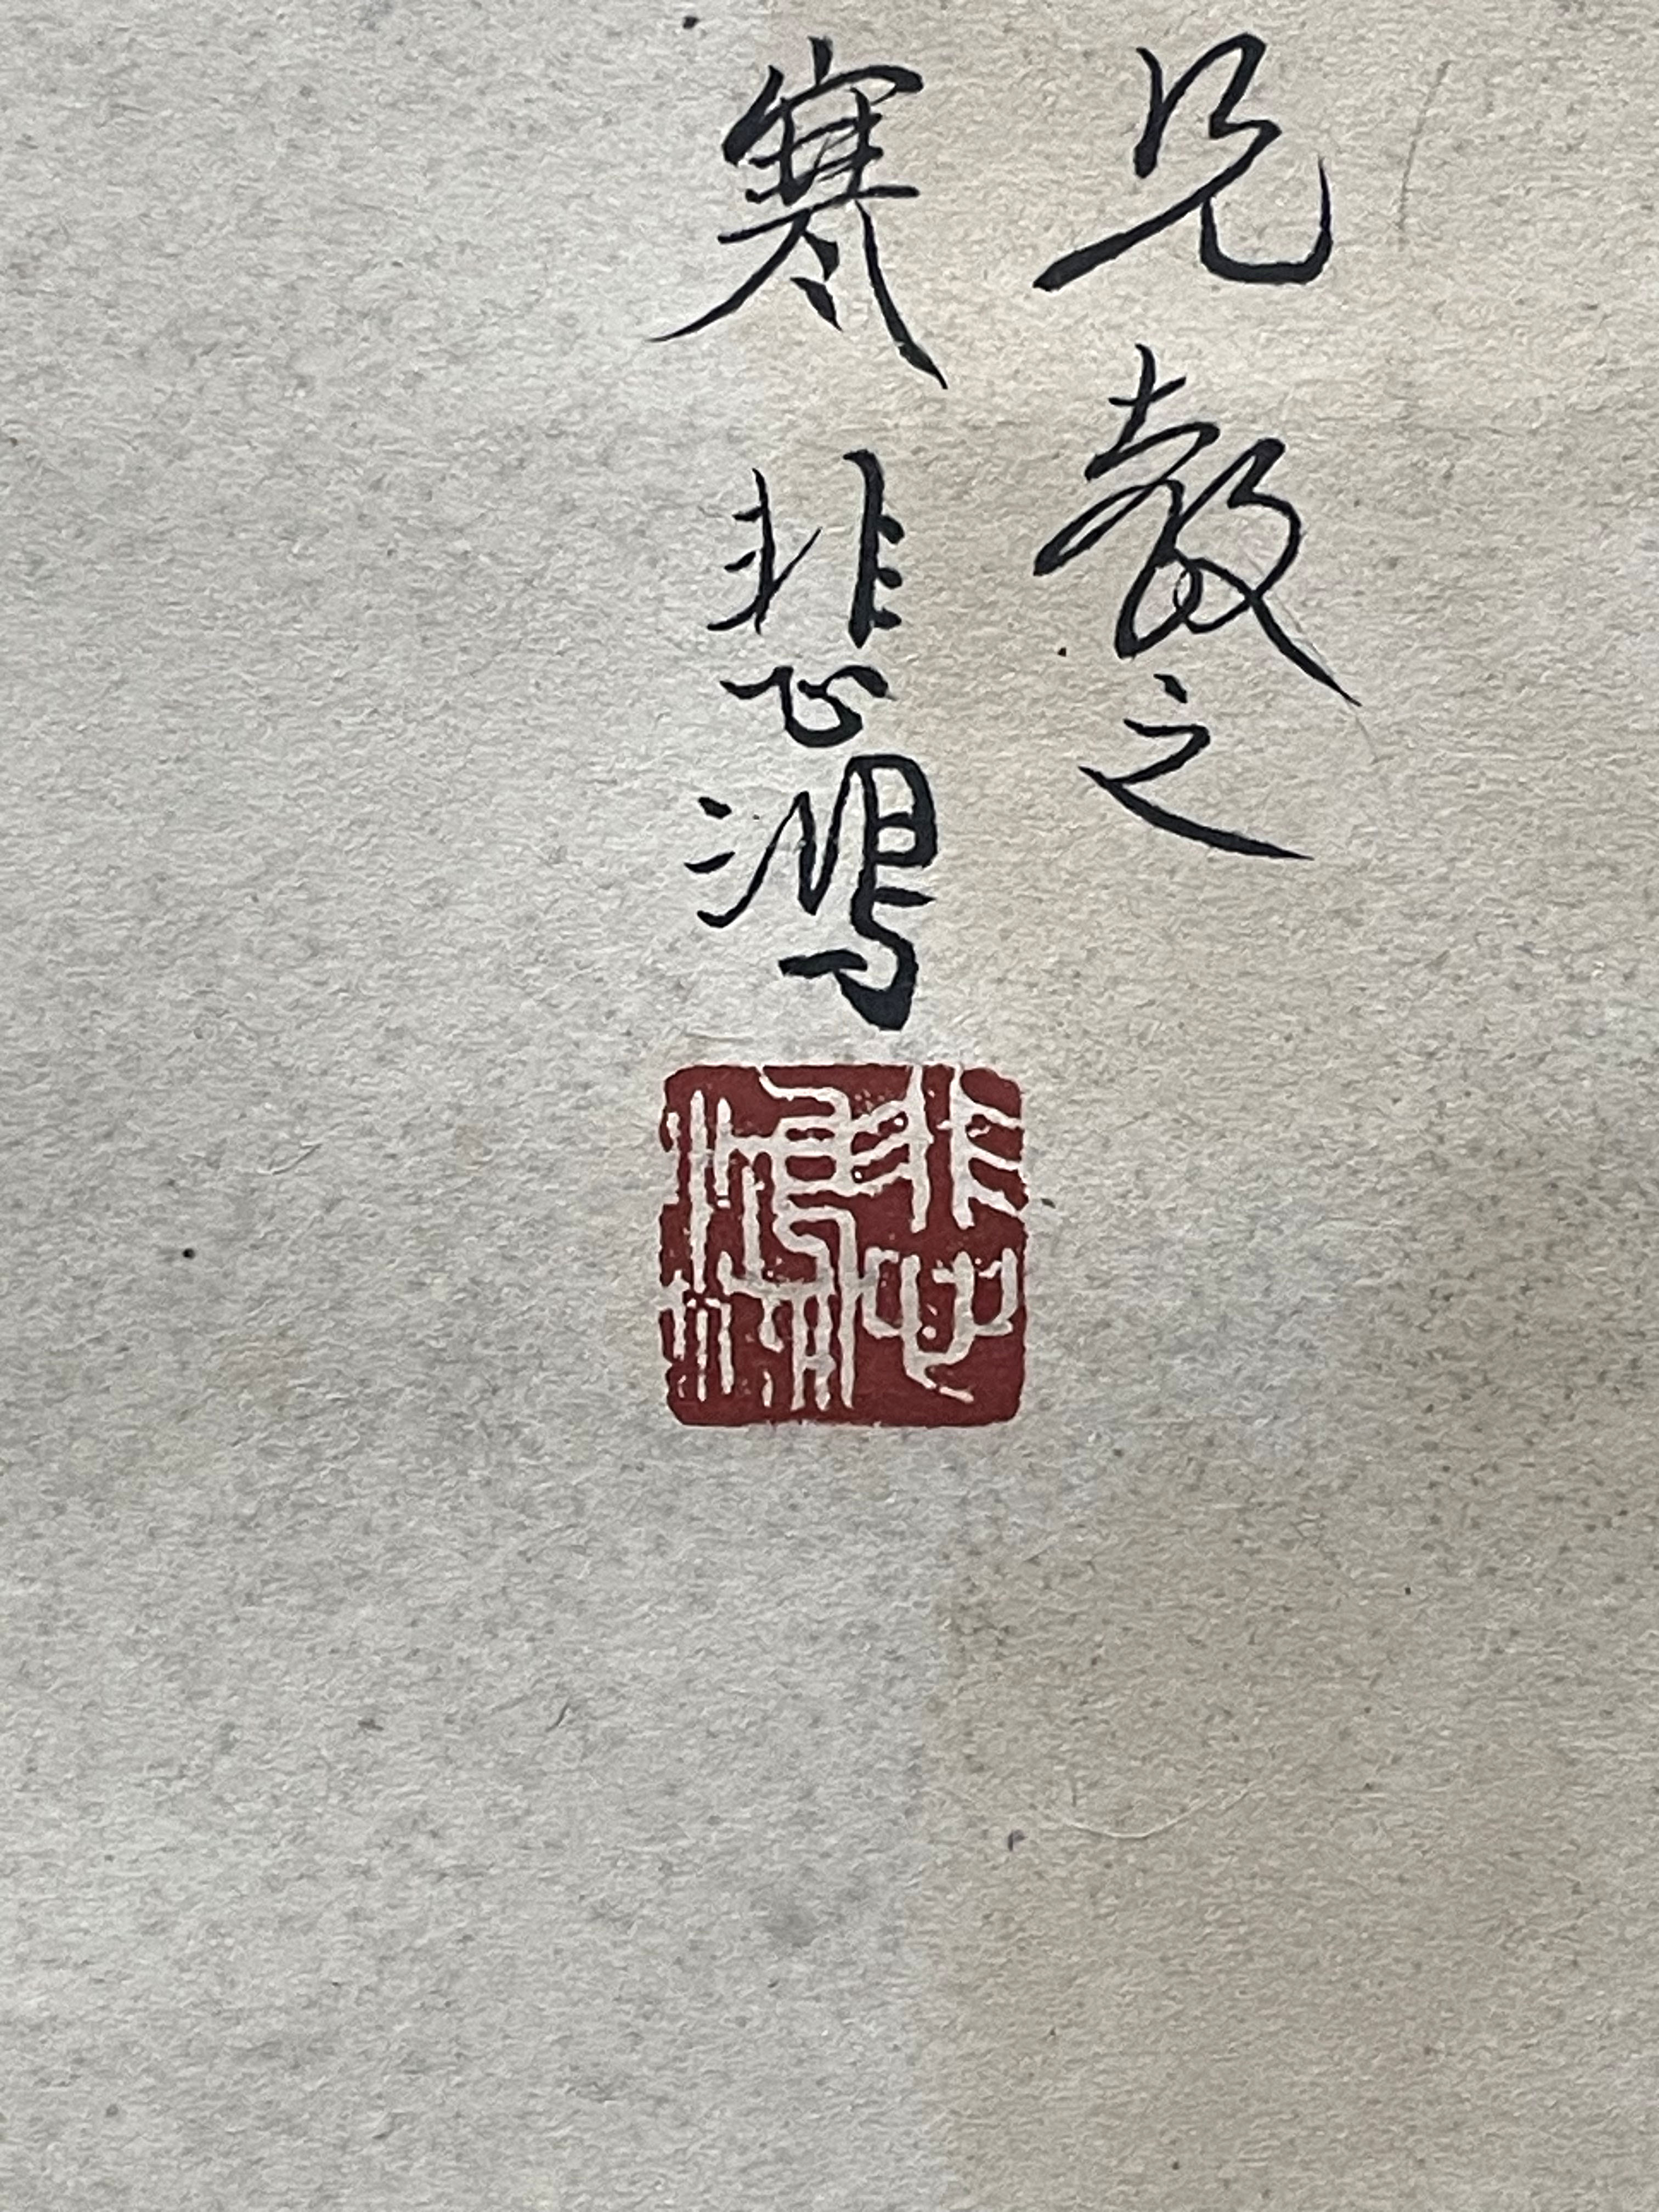 兄教之
寒 悲鴻
悲鴻